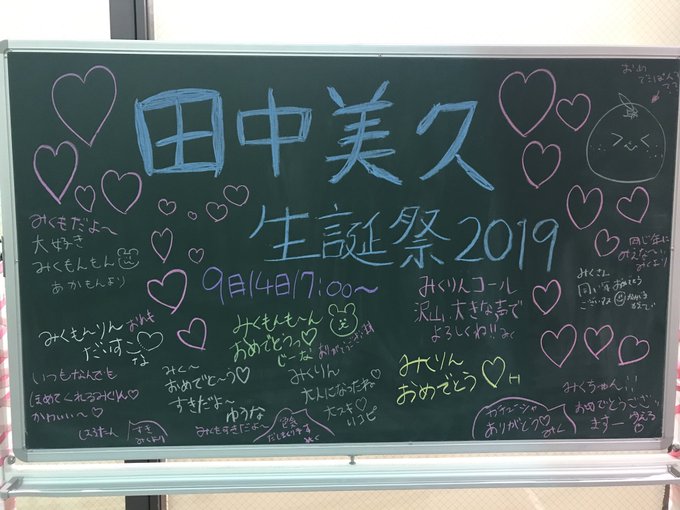 田中美久
生誕祭2019
9月14日17:00〜
おめ
でこぽん
みくもだよ〜
大好き
みくもんもん
あかもんより
みくもんもーん
おめでとうっ♡
じーな
ありがとうございます
みくりんコール
沢山、大きな声で
よろしくね!!みく
同じ年に
みえな〜い
みくより
みくさん
みくもーりん
だいすこ♡
な
いつもなんでも
ほめてくれるみくりん♡
かわいい〜♡
みく〜
おめでと〜う♡
すきだよ〜
ゆうな
みくもすきだよ〜
みくりん
大人になったね♡
大スキ♡
りコピ
みくりん
おめでとう♡H
みくちゃん!!
おめでとうござい
ますー
すき
みくより
ありがとう♡
みく